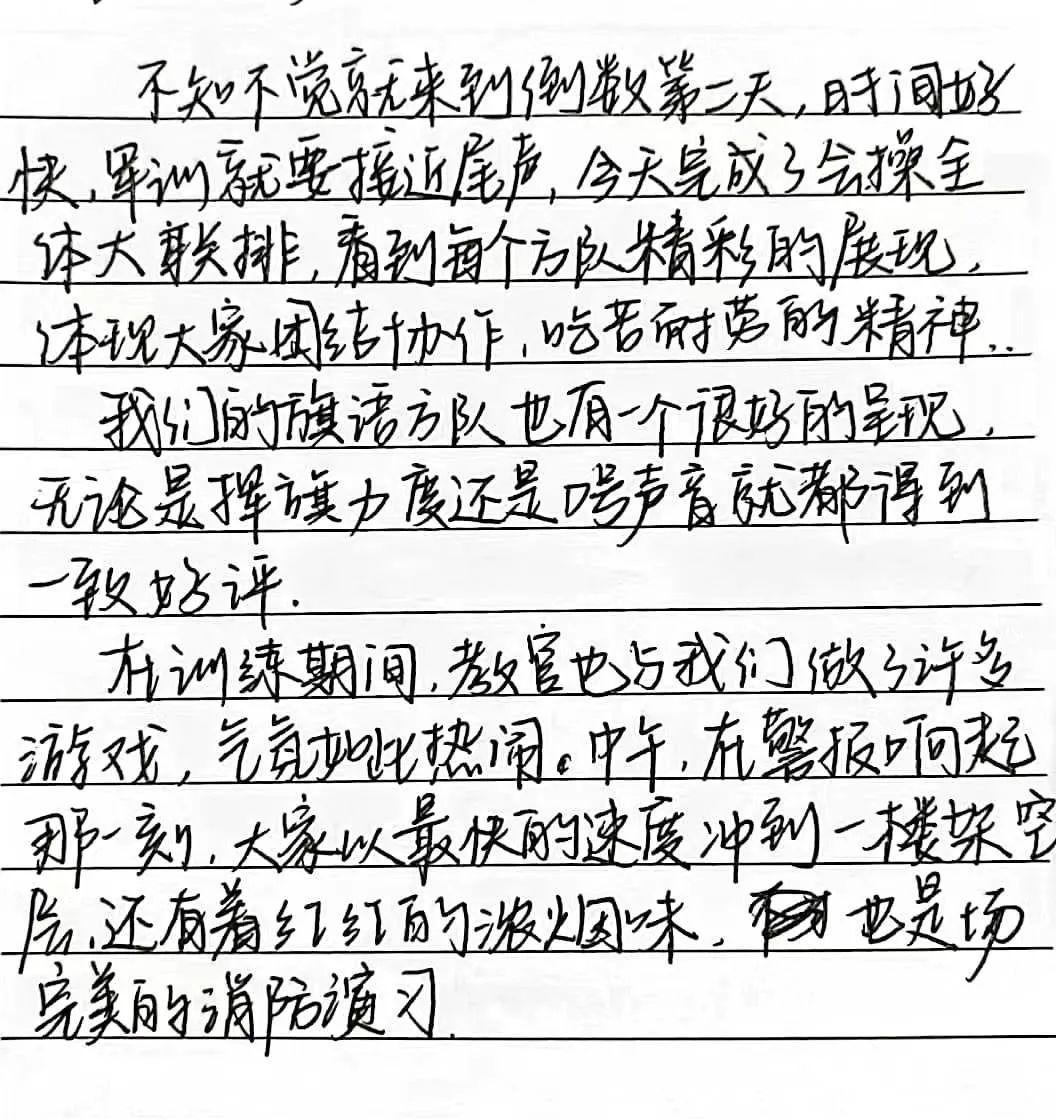 不知不觉就来到倒数第二天,时间好
快,军训就要接近尾声,今天完成了会操全
体大联排,看到每个方队精彩的展现,
体现大家团结协作,吃苦耐劳的精神..
我们的旗语方队也有一个很好的呈现,
无论是挥旗力度还是口号声音就都得到
一致好评.
在训练期间,教官也与我们做了许多
游戏,气氛如此热闹。中午,在警报响起
那一刻,大家以最快的速度冲到一楼架空
层,还有着红红的浓烟味,也是场
完美的消防演习.